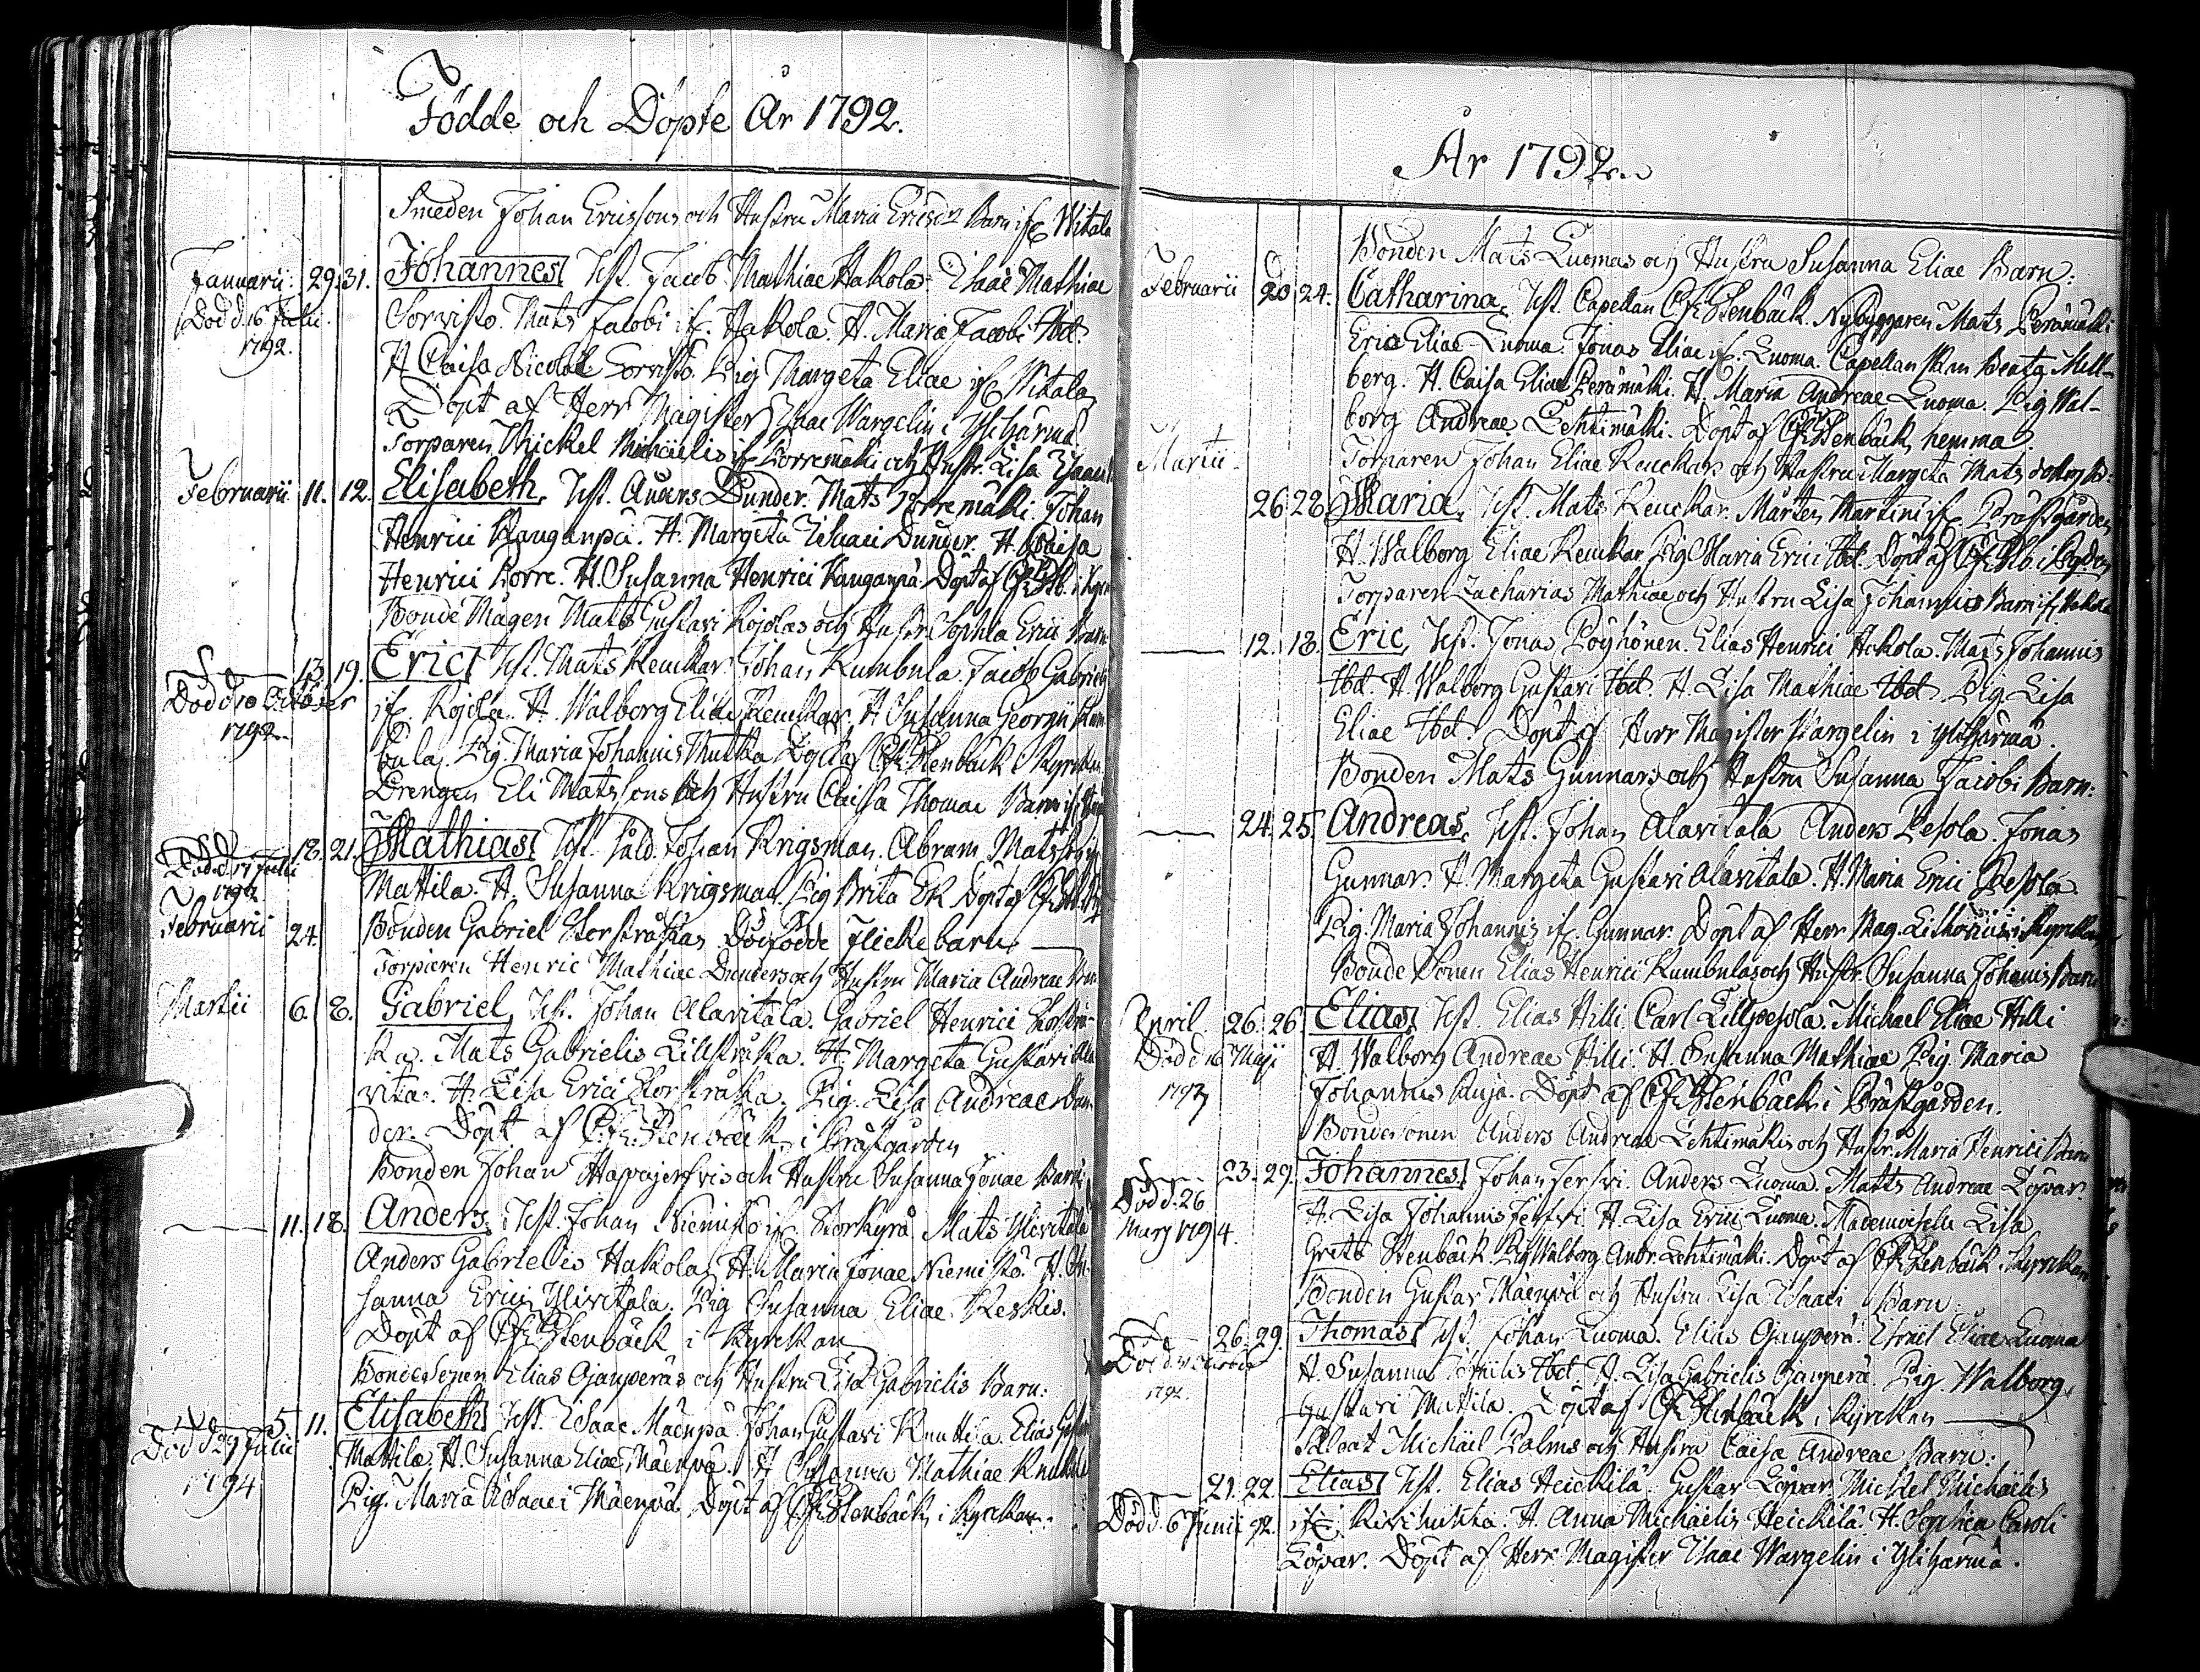 Födde och Döpte År 1792.
Smeden Johan Erissons och Hustru Maria Ericsd. Barn ifr. Witala
Januarii 29. 31. Johannes Test. Jacob Mathiae Hakola. Isaac Mathiae
Död d. 16 Julii 1792.
Sorvisto. Mats Jacobi ifr. Hakola. H. Maria Jacobi Ibd.
H. Caisa Nicolai Sorvisto. Pig. Margeta Eliae ifr. Vitala
Döpt af Herr Magister Isaac Wargelin i Ylihärmä.
Torparen Mickel Michaelis ifr. Porremäki och Hustr. Lisa Isaaci
Februarii 11. 12. Elisabeth, Test. Anders Dunder. Mats Porremäki. Johan
Henrici Kauganpä. H. Margeta Dunder. H. Caisa
Henrici Porre. H. Susanna Henrici Kauganpä. Döpt af
Bonde Mågen Mats Gustavi Rojolas och Hustr. Sophia Erici Barn
13. 19. Eric Test. Mats Keuckar. Johan Kumbula. Jacob Gabriels
Död d. 10 October 1792.
ifr. Rojola. H. Walborg Eliae Keuckar. H. Susanna Georgii Kum-
bula. Pig. Maria Johannis Mutka Döpt af Stenbäck i Kyrckan
Drengen Eli Matssons och Hustru Caissa Thomae Barn ifr.
18. 21. Mathias Test. Såld. Johan Krigsman. Abram Matsson
Död d. 17 Julii 1792
Mattila. H. Susanna Krigsman. Pig Brita Ek Döpt af
Februarii 24. Bonden Gabriel Storstråkas Dödfödde Flickebarn
Torparen Henric Mathiae Dunders och Hustru Maria Andreae Barn
Martii 6. 8. Gabriel, Test. Johan Alavitala. Gabriel Henrici Storstrå-
ka. Mats Gabrielis Lillstråka. H. Margeta Gustavi Ala-
vita. H. Lisa Erici Storstråka. Pig. Lisa Andreae
der. Döpt af Stenbäck i Prästgården
Bonden Johan Haapajerfvis och Hustru Susanna Jonae Barn
11. 18. Anders, Test. Johan Niemistö ifr. Storkyrå Mats Ylivitala
Anders Gabrielis Hakola. H. Maria Jonae Niemistö. H. Su-
sanna Erici Ylivitala. Pig Susanna Eliae Keskis.
Döpt af Stenbäck i Kyrckan
BondeSonen Elias Ojanperäs och Hustru Lisa Gabrielis Barn:
5 11. Elisabeth Test. Isaac Mäenpä. Johan Gustavi Knuttila. Elias
Död d. 29 Julii 1794
Mattila. H. Susanna Eliae Mäenpä. H. Susanna Mathiae Knuttila
Pig. Maria Isaaci Mäenpä. Döpt af Stenbäck i Kyrckan.
År 1792.
Bonden Mats Luomas och Hustru Susanna Eliae Barn:
Februarii 20 24. Catharina, Test. Capellan Stenbäck. Nybyggaren Mats Perämäki
Eric Eliae Luoma. Jonas Eliae ifr. Luoma. Capellanskan Beata Mell-
berg. H. Caisa Eliae Perämäki. H. Maria Andreae Luoma. Pig Wal-
borg Andreae Lehtimäki. Döpt af Stenbäck hemma.
Martii. Torparen Johan Eliae Keuckars och Hustru Margeta Mats dotters B.
26 28 Maria, Test. Mats Keuckar. Mårten Martini ifr. Prästgården
H. Walborg Eliae Keuckar Pig Maria Erici Ibd. Döpt af
Torparen Zacharias Mathiae och Hustru Lisa Johannis Barn ifr. Hakola
12. 18. Eric, Test. Jonas Pöyhönen. Elias Henrici Hakola. Mats Johannis
Ibd. H. Walborg Gustavi Ibd. H. Lisa Mathiae Ibd. Pig. Lisa
Eliae Ibd. Döpt af Herr Magister Wargelin i Ylihärmä.
Bonden Mats Gunnars och Hustru Susanna Jacobi Barn:
24. 25. Andreas, Test. Johan Alavitala Anders Pesola. Jonas
Gunnar. H. Margeta Gustavi Alavitala. H. Maria Erici Pesola
Pig. Maria Johannis ifr. Gunnar. Döpt af Herr Mag. Lithovius i Kyrckan
Bonde Sonen Elias Henrici Kumbulas och Hustr. Susanna Johannis Barn
April 26. 26 Elias, Test. Elias Hilli Carl Lillpesola. Michael Eliae Hilli
Död d. 10 Maji 1792
H. Walborg Andreae Hilli. H. Susanna Mathiae Pig. Maria
Johannis Kuja. Döpt af Stenbäck i Prästgården.
Bondesonen Anders Andreae Lehtimäkis och Hustr. Maria Henrici Barn
23. 29. Johannes Johan Jerfvi. Anders Luoma. Matts Andreae Löpar.
Död d. 26 Marj 1794.
H. Lisa Johannis Jerfvi. H. Lisa Erici Luoma. Mademoiselle Lisa
Greta Stenbäck Pig Walborg Andr. Lehtimäki. Döpt af Stenbäck i Kyrckan
Bonden Gustav Mäenpä och Hustru Lisa Isaaci Barn
26. 29. Thomas Test. Johan Luoma. Elias Ojanperä. Israel Eliae Luoma
1792.
H. Susanna Ibd. H. Lisa Gabrielis Ojanperä. Pig. Walborg
Gustavi Mattila. Döpt af Stenbäck i Kyrckan
Sldat Michäel Palms och Hustru Caisa Andreae Barn:
21. 22. Elias Test. Elias Heickilä. Gustav Löpar Mickel Michäelis
Död d. 6 Junii 92.
ifr. H. Anna Michäelis Heickilä. H. Sophia Caroli
Löpar. Döpt af Herr Magister Isaac Wargelin i Ylihärmä.